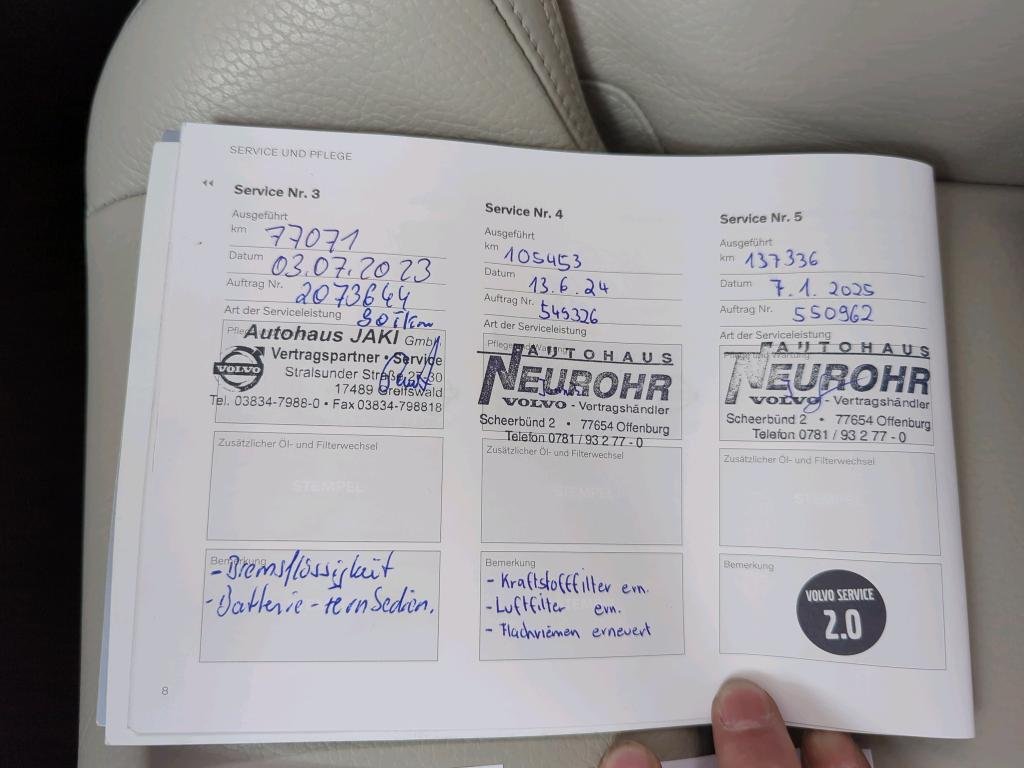 SERVICE UND PFLEGE
Service Nr. 3
Ausgeführt
km 77071
Datum 03.07.2023
Auftrag Nr. 2073644
Art der Serviceleistung
Autohaus JAKI GmbH
VOLVO
Vertragspartner • Service
Stralsunder Straße 27-30
17489 Greifswald
Tel. 03834-7988-0 • Fax 03834-798818
Zusätzlicher Öl- und Filterwechsel
STEMPEL
Bemerkung
- Bremsflüssigkeit
- Batterie-Fernbedien.
Service Nr. 4
Ausgeführt
km 105453
Datum 13.6.24
Auftrag Nr. 545326
Art der Serviceleistung
Pflege und Wartung
AUTOHAUS
NEUROHR
VOLVO - Vertragshändler
Scheerbünd 2 • 77654 Offenburg
Telefon 0781 / 93 2 77 - 0
Zusätzlicher Öl- und Filterwechsel
STEMPEL
Bemerkung
- Kraftstofffilter ern.
- Luftfilter ern.
- Flachriemen erneuert
Service Nr. 5
Ausgeführt
km 137336
Datum 7.1.2025
Auftrag Nr. 550962
Art der Serviceleistung
Pflege und Wartung
AUTOHAUS
NEUROHR
VOLVO - Vertragshändler
Scheerbünd 2 • 77654 Offenburg
Telefon 0781 / 93 2 77 - 0
Zusätzlicher Öl- und Filterwechsel
STEMPEL
Bemerkung
VOLVO SERVICE
2.0
8